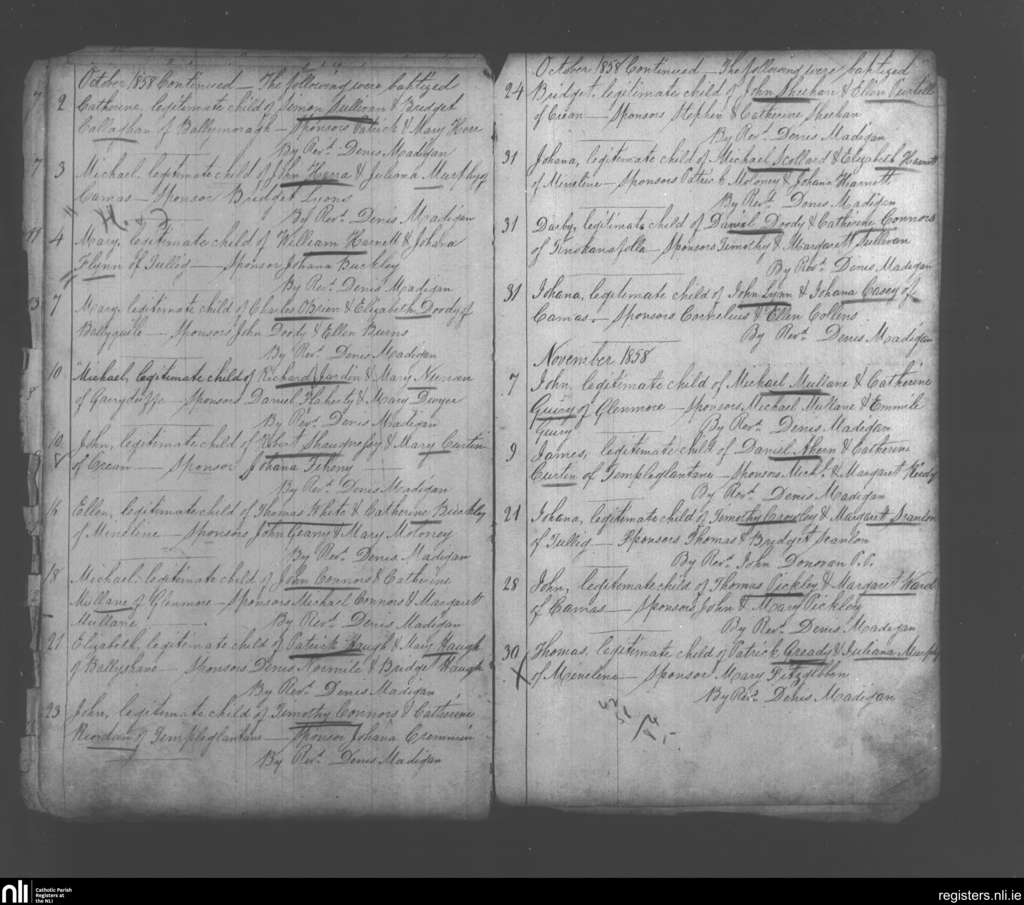 October 1858 Continued — The following were baptized
2 Catherine, legitimate child of Simon Sullivan & Bridget
Callaghan of Ballymoragh — Sponsors Patrick & Mary
By Revd. Denis Madigan
3 Michael, legitimate child of John & Juliana Murphy of
Camas — Sponsor Bridget Lyons
By Revd. Denis Madigan
4 Mary, legitimate child of William Harnett & Johana
Flynn of Tullig — Sponsor Johana Buckley
By Revd. Denis Madigan
7 Mary, legitimate child of Charles OBrien & Elizabeth Doody of
Ballyguile — Sponsors John Doody & Ellen Burns
By Revd. Denis Madigan
10 Michael, legitimate child of Richard & Mary Neenan
of — Sponsors Daniel Flaherty & Mary Dwyer
By Revd. Denis Madigan
10 John, legitimate child of Robert Shaugnessy & Mary Curtin
of — Sponsor Johana
By Revd. Denis Madigan
16 Ellen, legitimate child of Thomas White & Catherine Buckley
of Mineline — Sponsors John Geany & Mary Moloney
By Revd. Denis Madigan
18 Michael, legitimate child of John Connors & Catherine
Mullane of Glenmore — Sponsors Michael Connors & Margarett
Mullane — By Revd. Denis Madigan
21 Elizabeth, legitimate child of Patrick Haugh & Mary Haugh
of — Sponsors Denis & Bridget Haugh
By Revd. Denis Madigan
23 John, legitimate child of Timothy Connors & Catherine
Reordan of Templeglantane — Sponsor Johana
By Revd. Denis Madigan
October 1858 Continued — The following were baptized
24 Bridget, legitimate child of John Sheehan & Ellen Purtell
of — Sponsors Stephen & Catherine Sheehan
By Revd. Denis Madigan
31 Johana, legitimate child of Michael Scollard & Elizabeth Harnett
of Mineline — Sponsors Patrick Moloney & Johana Hearnett
By Revd. Denis Madigan
31 Darby, legitimate child of Daniel Doody & Catherine Connors
of — Sponsors Timothy & Margarett Sullivan
By Revd. Denis Madigan
31 Johana, legitimate child of John Lynn & Johana Casey of
Camas — Sponsors Cornelius & Ellen Collins
By Revd. Denis Madigan
November 1858
7 John, legitimate child of Michael Mullane & Catherine
Guiry of Glenmore — Sponsors Michael Mullane & Emmile
Guiry By Revd. Denis Madigan
9 James, legitimate child of Daniel Ahern & Catherine
Curten of Templeglantane — Sponsors Michl. & Margaret
By Revd. Denis Madigan
21 Johana, legitimate child of Timothy Crowley & Margaret Scanlon
of Tullig — Sponsors Thomas & Bridget Scanlon
By Revd. John Donovan P.P.
28 John, legitimate child of Thomas Pickley & Margaret Ward
of Camas — Sponsors John & Mary Pickley
By Revd. Denis Madigan
30 Thomas, legitimate child of Patrick Gready & Juliana
of Mineline — Sponsor Mary Fitzgibbon
By Revd. Denis Madigan
nli Catholic Parish
Registers at
the NLI
registers.nli.ie